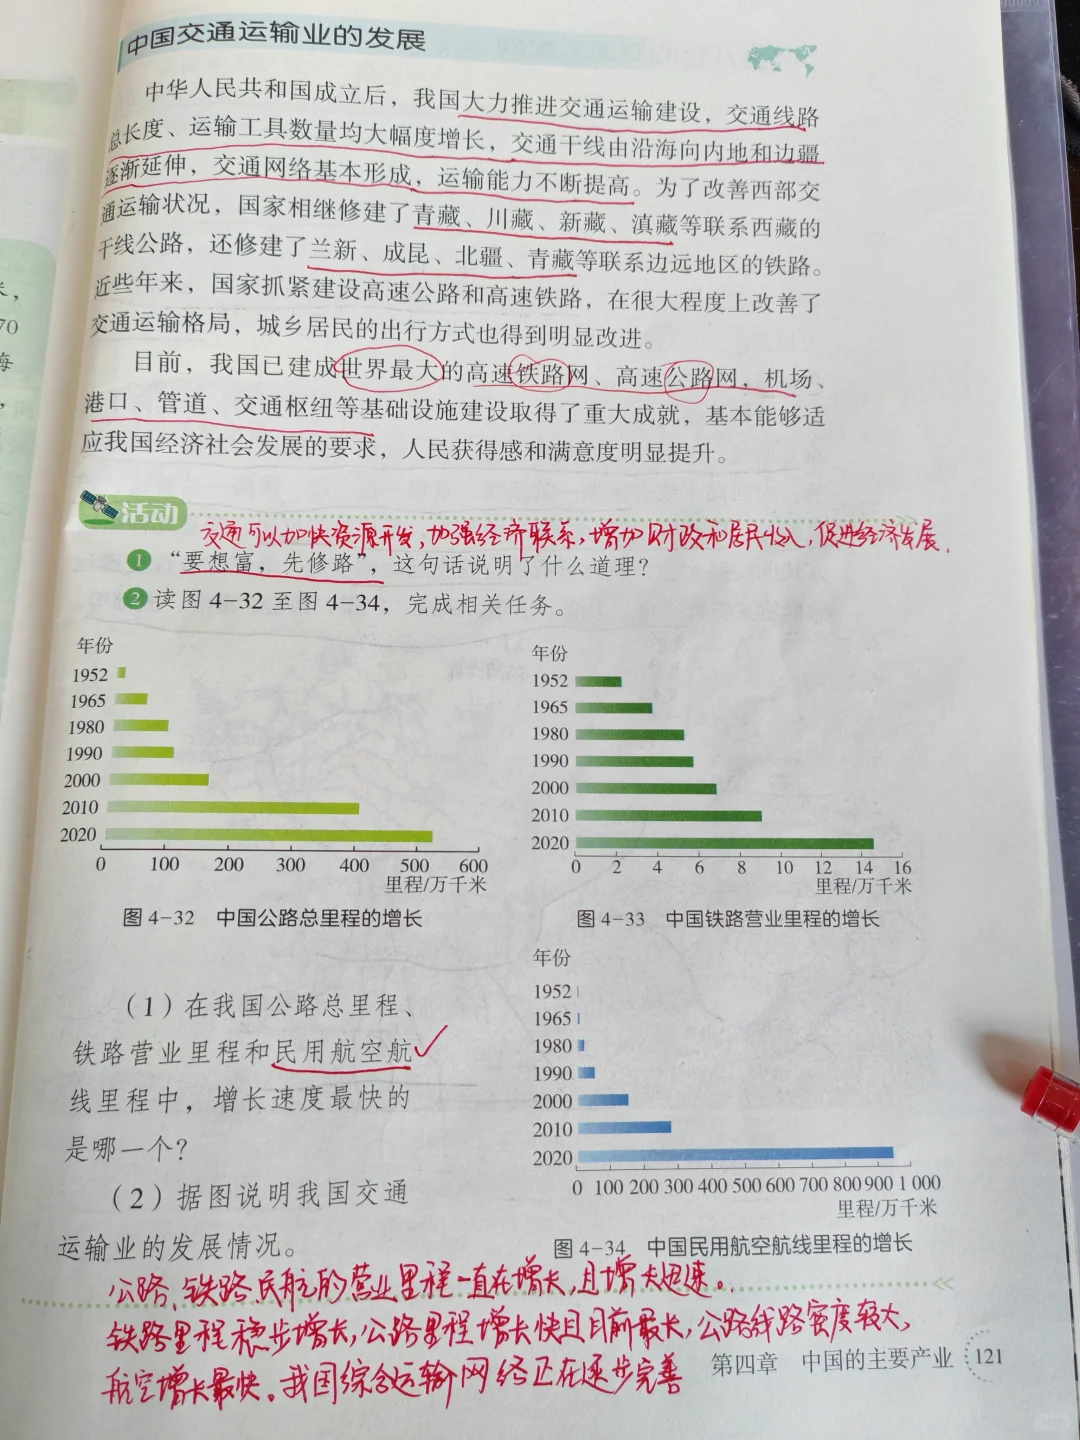 中国交通运输业的发展
中华人民共和国成立后，我国大力推进交通运输建设，交通线路
总长度、运输工具数量均大幅度增长，交通干线由沿海向内地和边疆
逐渐延伸，交通网络基本形成，运输能力不断提高。为了改善西部交
通运输状况，国家相继修建了青藏、川藏、新藏、滇藏等联系西藏的
干线公路，还修建了兰新、成昆、北疆、青藏等联系边远地区的铁路。
近些年来，国家抓紧建设高速公路和高速铁路，在很大程度上改善了
交通运输格局，城乡居民的出行方式也得到明显改进。
目前，我国已建成世界最大的高速铁路网、高速公路网，机场、
港口、管道、交通枢纽等基础设施建设取得了重大成就，基本能够适
应我国经济社会发展的要求，人民获得感和满意度明显提升。
活动
交通可以加快资源开发，加强经济联系，增加财政和居民收入，促进经济发展.
1 “要想富，先修路”，这句话说明了什么道理？
2 读图 4-32 至图 4-34，完成相关任务。
年份
1952
1965
1980
1990
2000
2010
2020
0 100 200 300 400 500 600
里程/万千米
图 4-32 中国公路总里程的增长
年份
1952
1965
1980
1990
2000
2010
2020
0 2 4 6 8 10 12 14 16
里程/万千米
图 4-33 中国铁路营业里程的增长
（1）在我国公路总里程、
铁路营业里程和民用航空航✓
线里程中，增长速度最快的
是哪一个？
（2）据图说明我国交通
运输业的发展情况。
年份
1952
1965
1980
1990
2000
2010
2020
0 100 200 300 400 500 600 700 800 900 1 000
里程/万千米
图 4-34 中国民用航空航线里程的增长
公路、铁路民航的营业里程一直在增长，且增大迅速。
铁路里程稳步增长，公路里程增长快且目前最长，公路线路密度较大，
航空增长最快。我国综合运输网络正在逐步完善
第四章 中国的主要产业 121
70
海